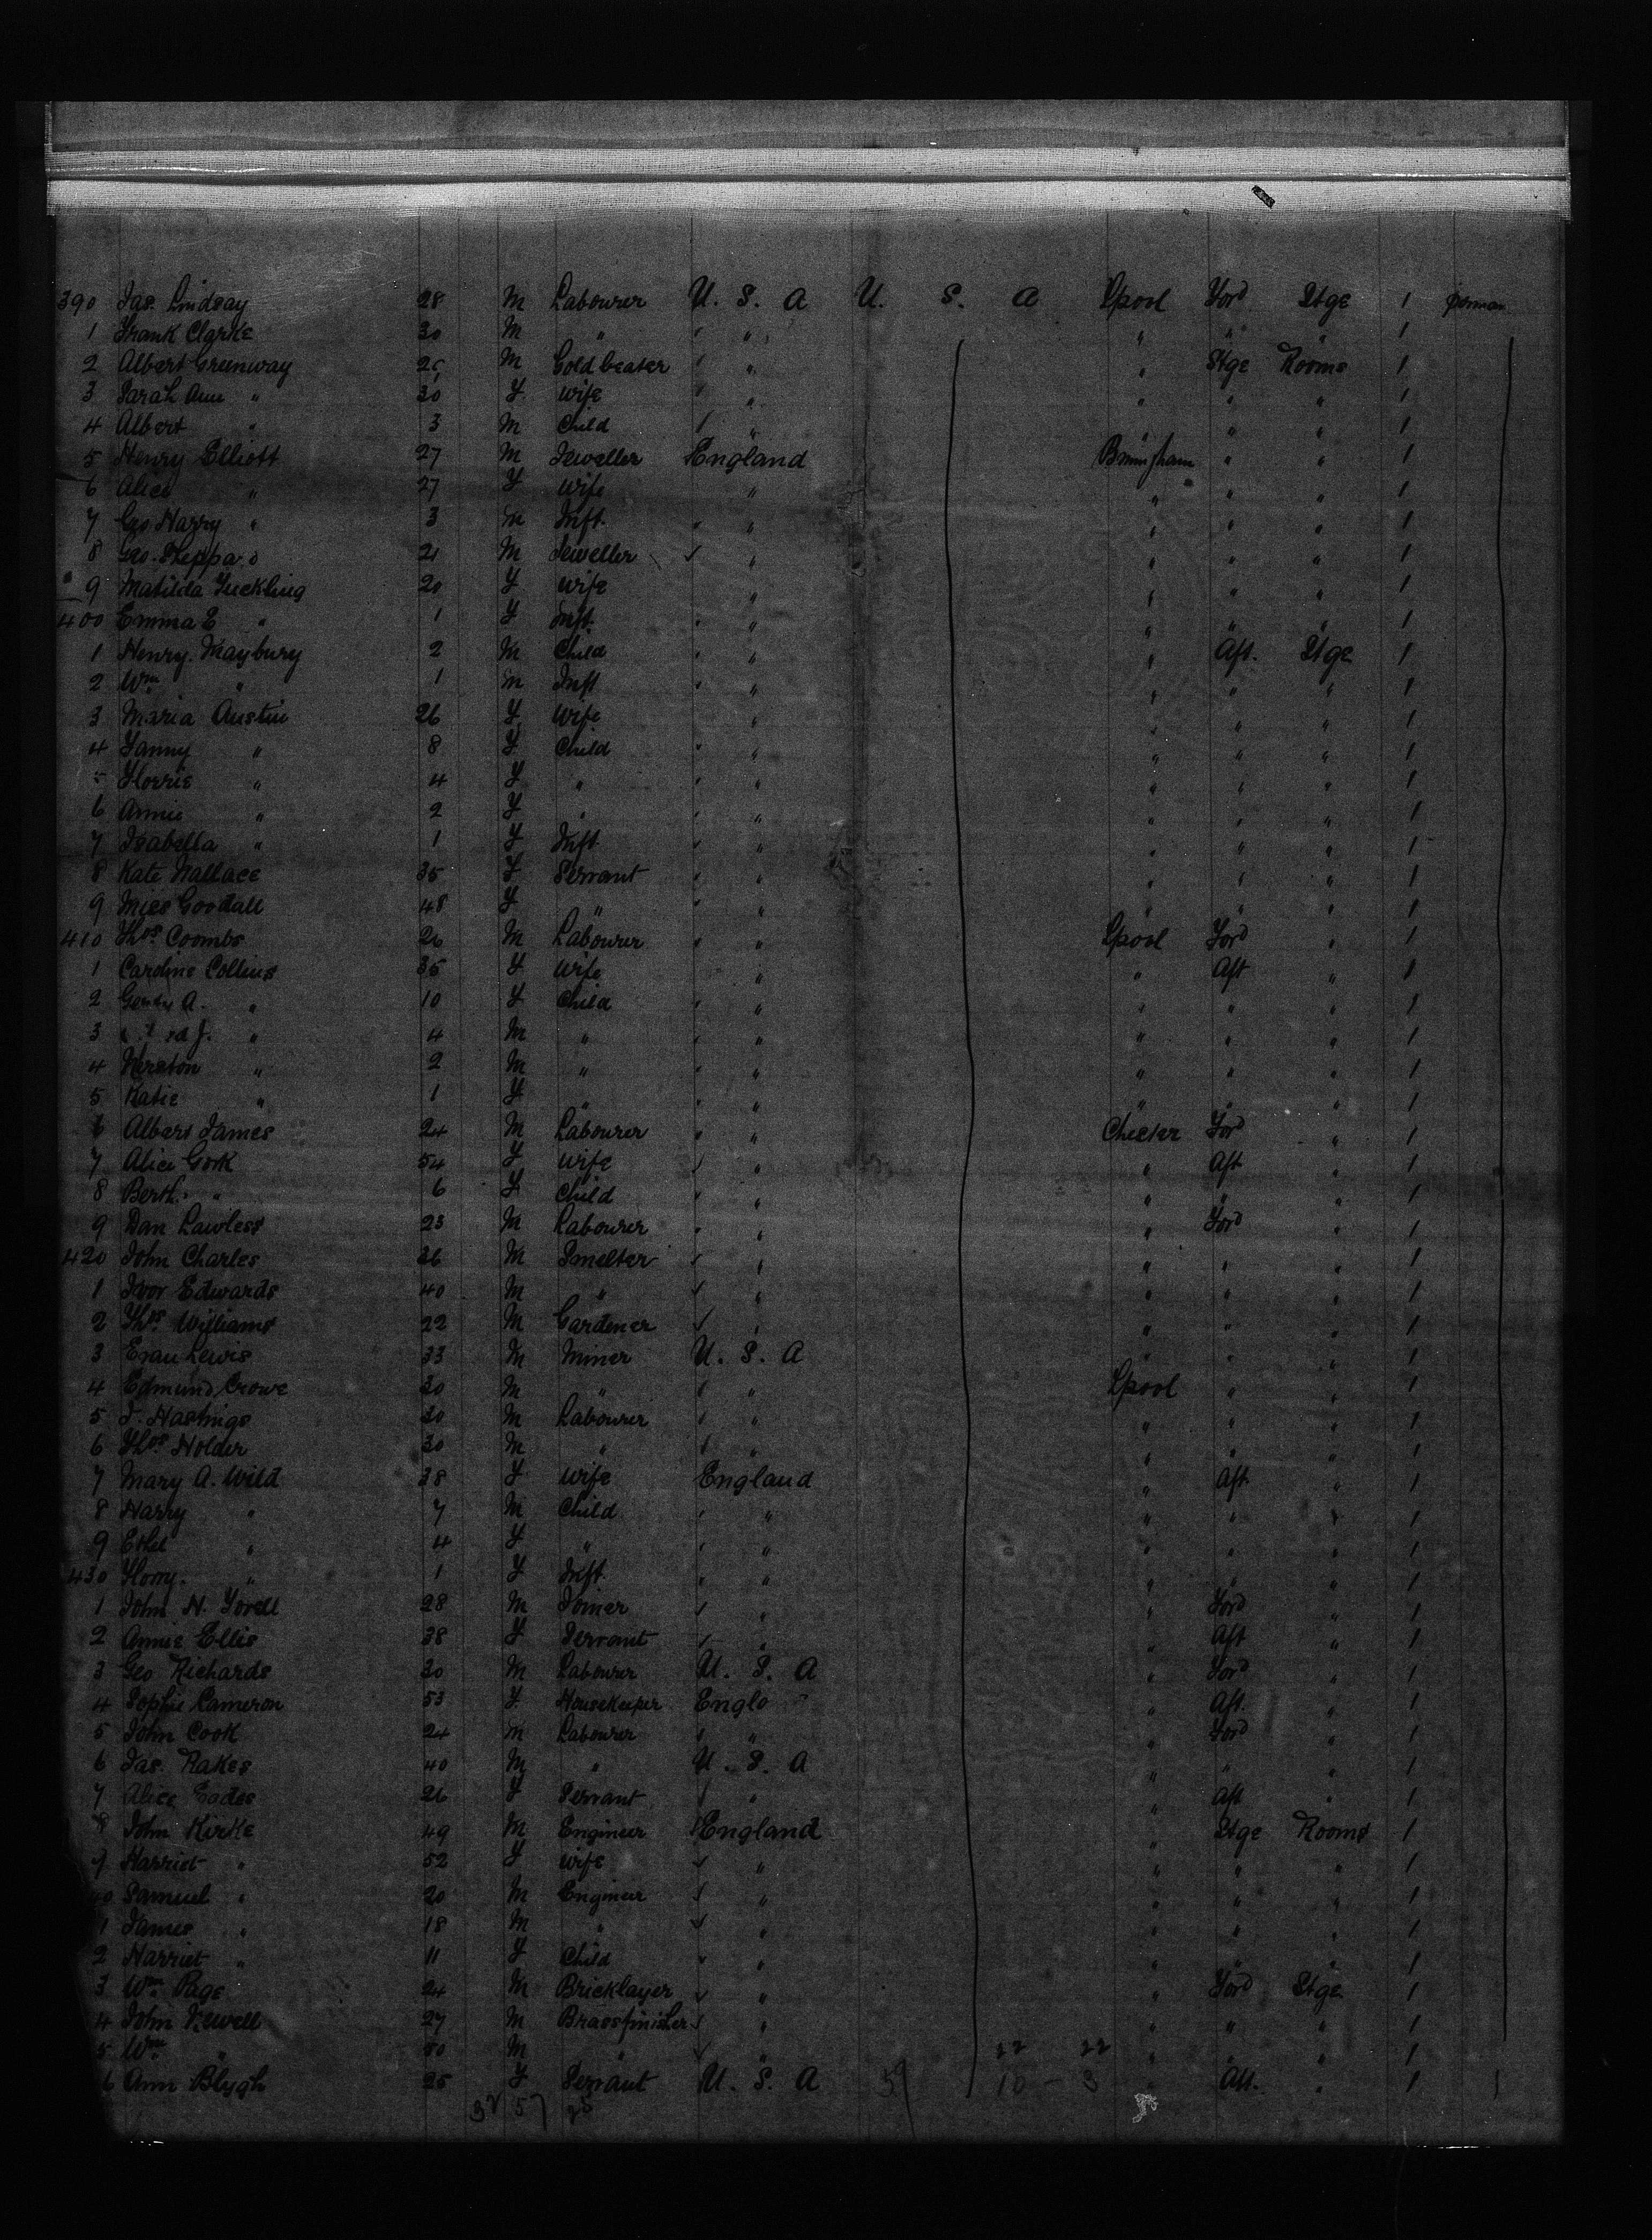 390 Jas. Lindsay 28 M Labourer U. S. A U. S. A Lpool Ford Stge 1
1 Frank Clarke 30 M " " " " " " 1
2 Albert Greenway M Goldbeater " " " Stge Rooms 1
3 Sarah Ann " 30 F wife " " " " " 1
4 Albert " 3 M Child " " " " " 1
5 Henry Elliott 27 M Jeweller England " " 1
6 Alice " 27 F wife " " " " 1
7 Geo Harry " 3 M Inft. " " " " " 1
8 21 M Jeweller " " " " 1
9 Matilda 20 F wife " " " " 1
400 Emma E " 1 F Inft. " " " " " 1
1 Henry Maybury 2 M Child " " " Aft. Stge 1
2 Wm " 1 M Inft " " " " " 1
3 Maria Austin 26 F wife " " " " 1
4 Fanny " 8 F Child " " " " " 1
Florrie " 4 F " " " " " " 1
6 Annie " 2 F " " " " " " 1
7 Isabella " 1 F Inft. " " " " " 1
8 Kate Wallace 35 F Servant " " " " " 1
9 Goodall 48 F " " " " " 1
410 Thos. Coombs 26 M Labourer " " Lpool Ford " 1
1 Caroline Collins 35 F wife " " Aft " 1
2 A. " 10 F Child " " " " " 1
3 J. " 4 M " " " " " " 1
4 " 2 M " " " " " " 1
5 Katie " 1 F " " " " " " 1
6 Albert James 24 M Labourer " " Chester Ford " 1
7 Alice 54 F wife " " Aft " 1
8 " 6 F Child " " " " " 1
9 Dan Lawless 23 M Labourer " " " Ford " 1
420 John Charles 36 M Smelter " " " " 1
1 Ivor Edwards 40 M " " " " " 1
2 Thos Williams 22 M Gardener " " " " 1
3 Evan Lewis 33 M Miner U. S. A " " " 1
4 Edmund Crowe 30 M " " " Lpool " " 1
5 Hastings 30 M Labourer " " " " " 1
6 Thos Holder 30 M " " " " " " 1
7 Mary A. Wild 38 F wife England " Aft " 1
8 Harry " 7 M Child " " " " " 1
9 Ethel " 4 F " " " " " " 1
430 " 1 F Inft. " " " " " 1
1 John H. 28 M Joiner " " Ford " 1
2 Annie Ellis 38 F Servant " " Aft " 1
3 Geo Richards 30 M Labourer U. S. A " Ford " 1
4 Sophie Cameron 53 F Housekeeper Engld " Aft. " 1
5 John Cook 24 M Labourer " " " Ford " 1
6 Jas. Rakes 40 M " U. S. A " " " 1
7 Alice Eades 26 F Servant " " " Aft " 1
8 John Kirke 49 M Engineer England " Stge Rooms 1
9 Harriet " 52 F wife " " " " 1
40 Samuel " 20 M Engineer " " " " 1
1 James " 18 M " " " " " 1
2 Harriet " 11 F Child " " " " " 1
3 Wm. Page 24 M Bricklayer " " Ford Stge 1
4 John 27 M Brassfinisher " " " " 1
5 Wm " 50 M " " " " " 1
6 Ann Blygh 25 F Servant U. S. A " Aft. " 1